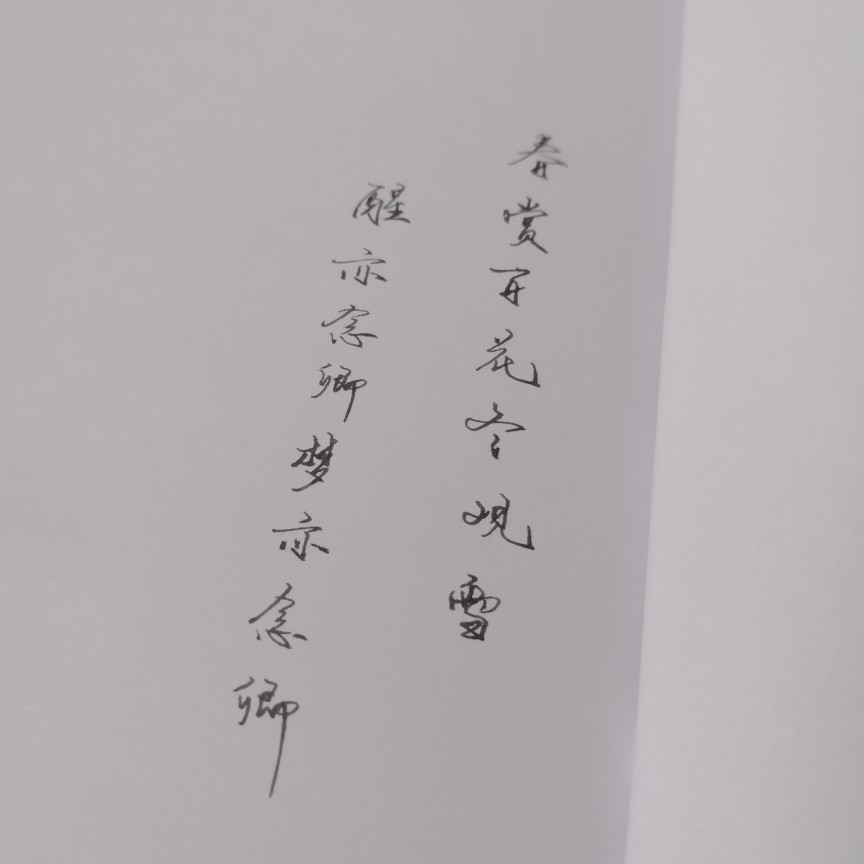 春赏百花冬观雪
醒亦念卿梦亦念卿